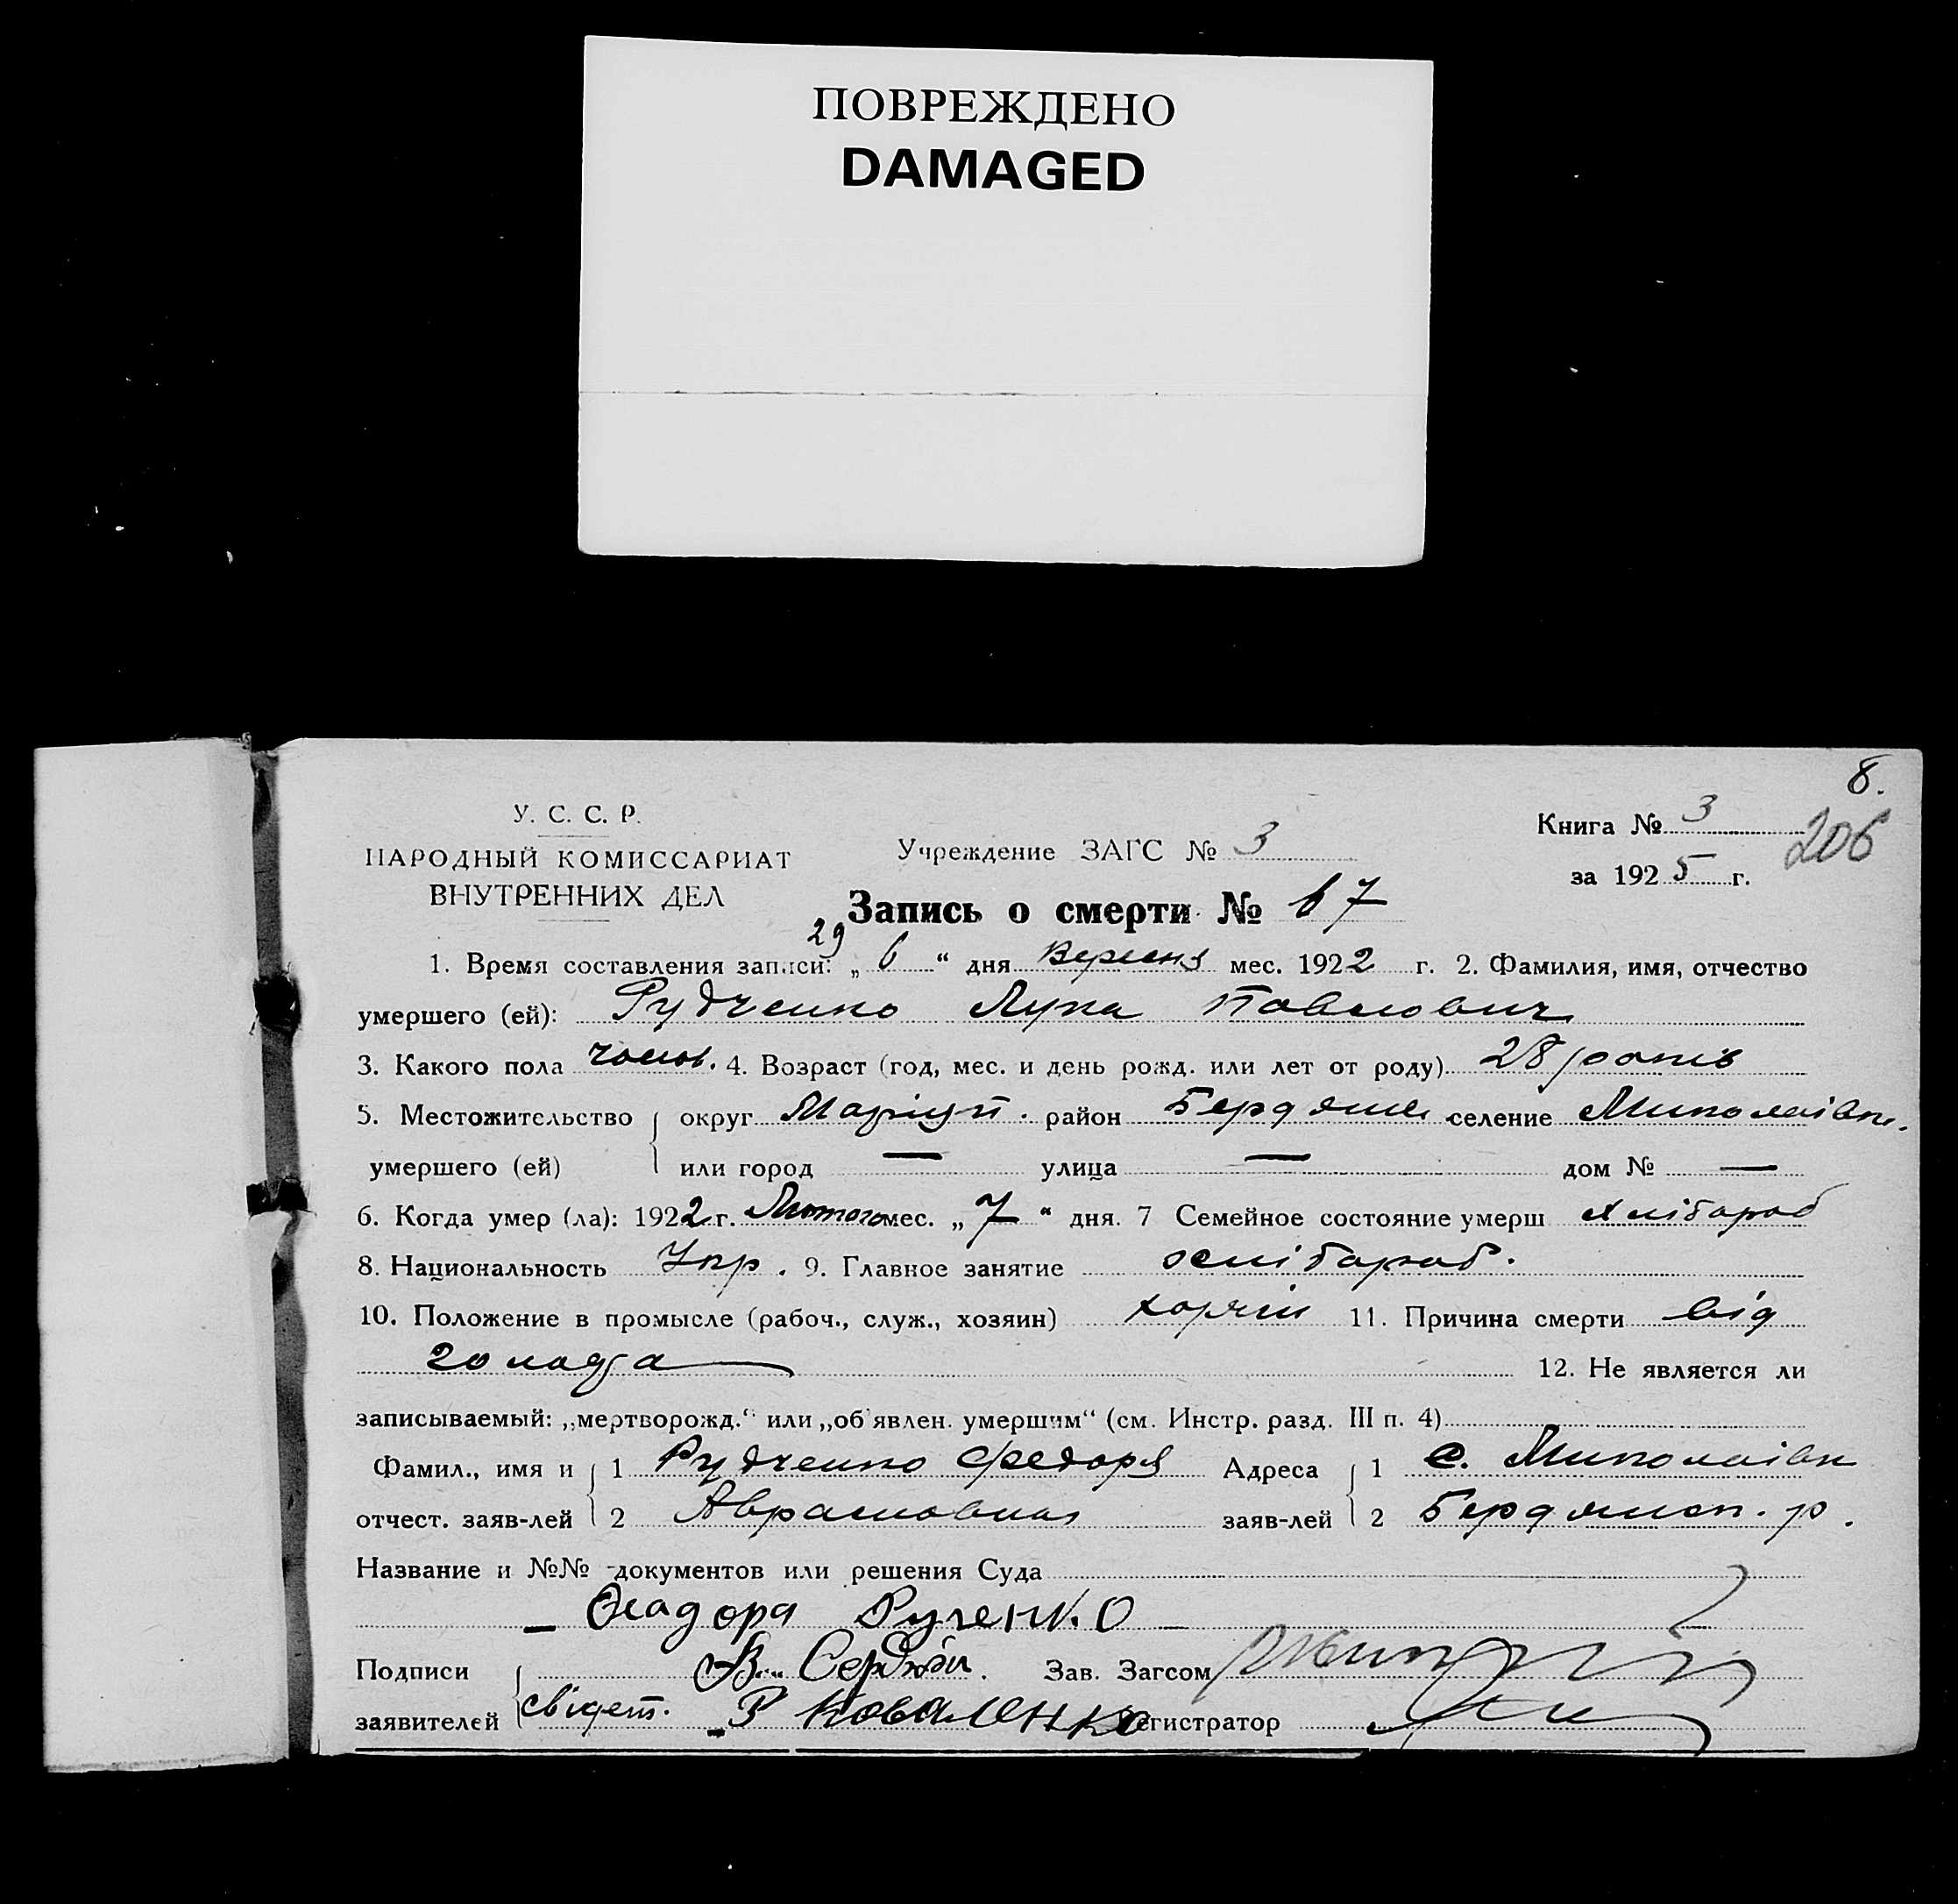 ПОВРЕЖДЕНО
DAMAGED
8.
206
У. С. С. Р.
НАРОДНЫЙ КОМИССАРИАТ
ВНУТРЕННИХ ДЕЛ
Учреждение ЗАГС № 3
Книга № 3
за 1925 г.
Запись о смерти № 67
29
1. Время составления записи: „ 6 “ дня Вересня мес. 1922 г. 2. Фамилия, имя, отчество
умершего (ей): Рудченко Лука Павлович
3. Какого пола чолов. 4. Возраст (год, мес. и день рожд. или лет от роду) 28 років
5. Местожительство округ Маріуп. район Бердянск селение Миколаівк.
умершего (ей) или город — улица — дом № —
6. Когда умер (ла): 1922 г. Лютого мес. „ 7 “ дня. 7 Семейное состояние умерш хлібороб
8. Национальность Укр. 9. Главное занятие хлібороб.
10. Положение в промысле (рабоч., служ., хозяин) 11. Причина смерти від
голода
12. Не является ли
записываемый: „мертворожд.“ или „об'явлен. умершим“ (см. Инстр. разд. III п. 4)
Фамил., имя и 1 Рудченко Федора Адреса 1 с. Миколаівк
отчест. заяв-лей 2 Аврамовна заяв-лей 2 Бердянск. р.
Название и №№ документов или решения Суда
— Рученко —
Подписи Зав. Загсом
заявителей свідет. Коваленко Регистратор